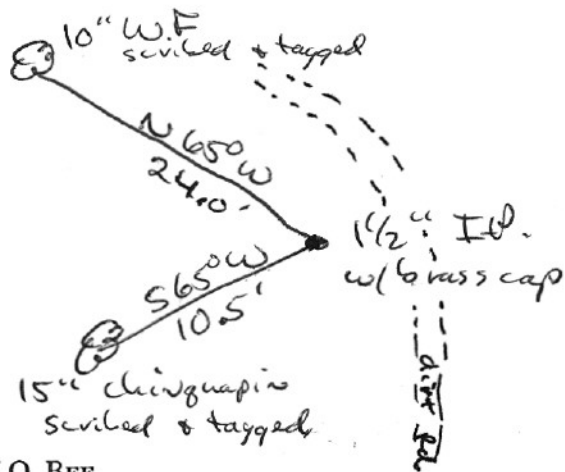 10" W.F
scribed & tagged
N 65° W
24.0'
1 1/2" I.P.
w/ brass cap
S 65° W
10.5'
15" chinquapin
scribed & tagged
dirt Rd
O. REF